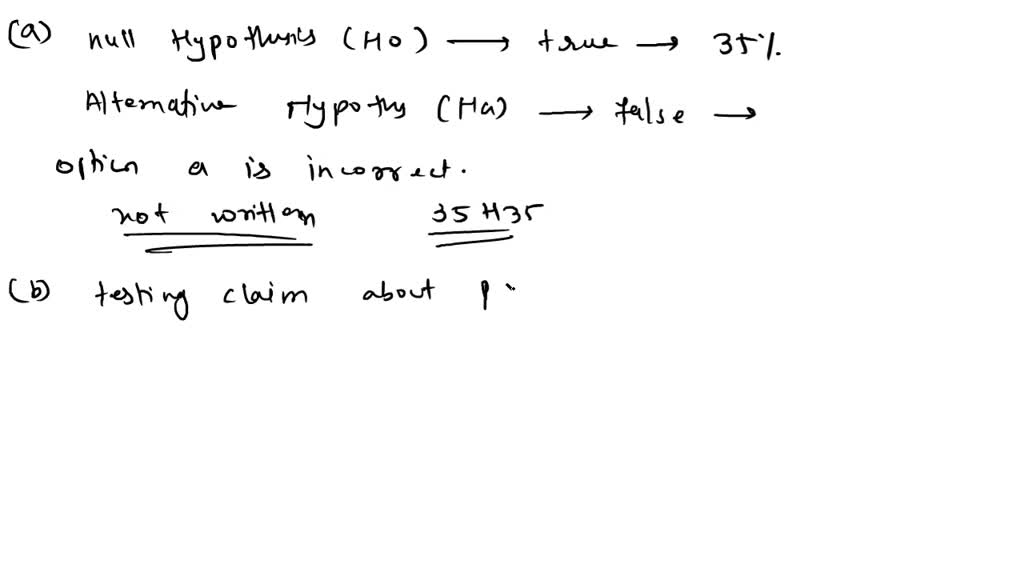 (a) null Hypothesis (H0) → true → 35%.
Alternative Hypoths (Ha) → false →
option a is incorrect.
not written 35 H35
(b) testing claim about p